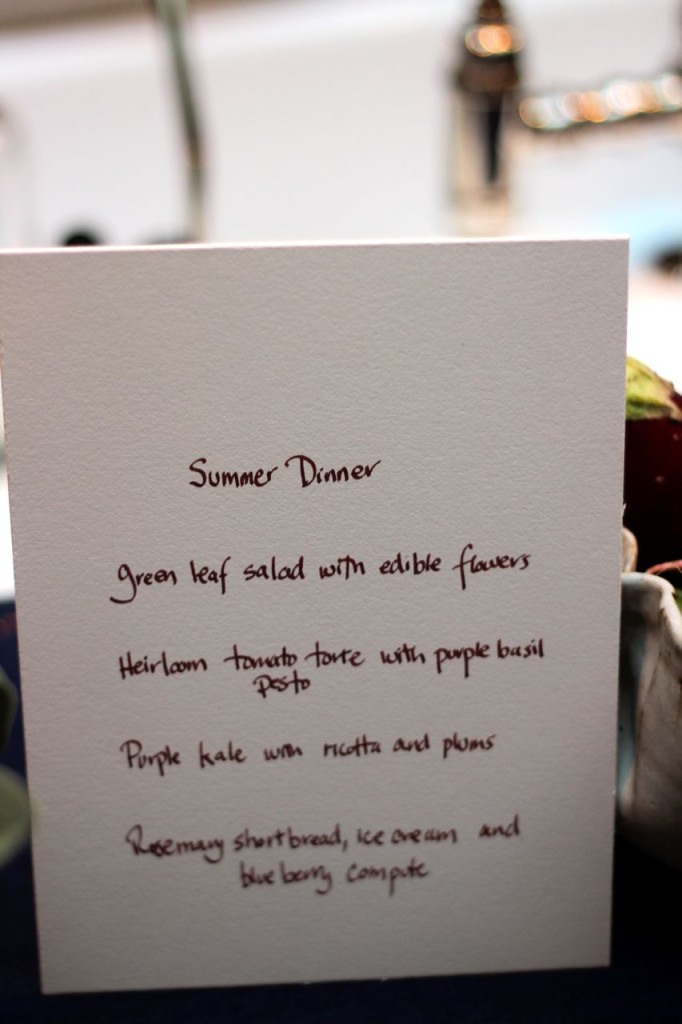 Summer Dinner
green leaf salad with edible flowers
Heirloom tomato torte with purple basil
Pesto
Purple kale with ricotta and plums
Rosemary shortbread, ice cream and
blueberry compute